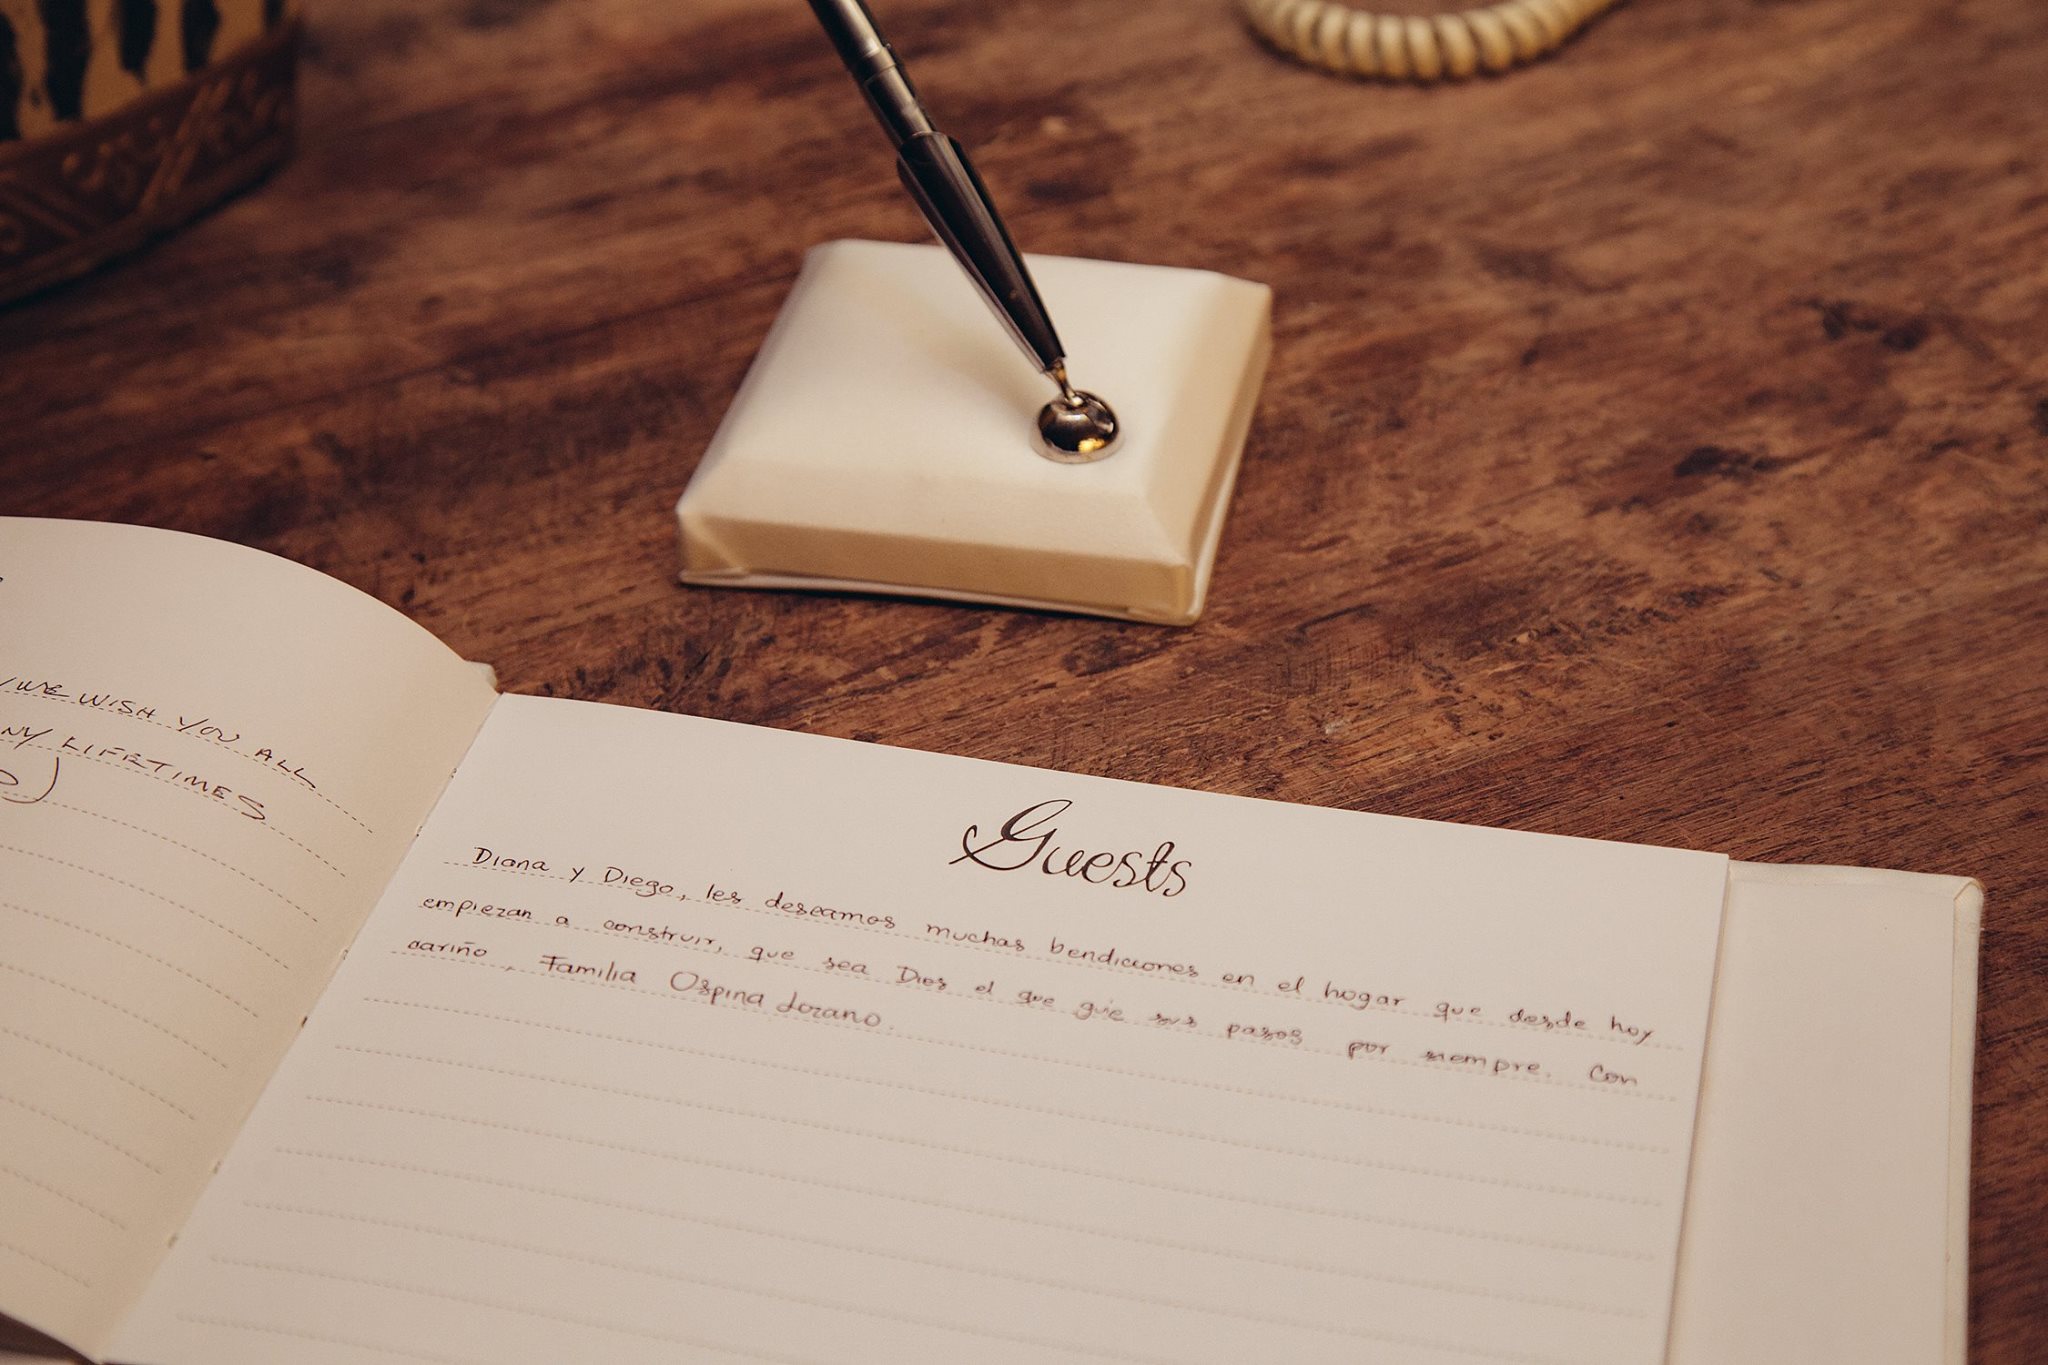 WE WISH YOU ALL
NY LIFETIMES
Guests
Diana y Diego, les deseamos muchas bendiciones en el hogar que desde hoy
empiezan a construir, que sea Dios el que guie sus pasos por siempre. Con
cariño, Familia Ospina Lozano.